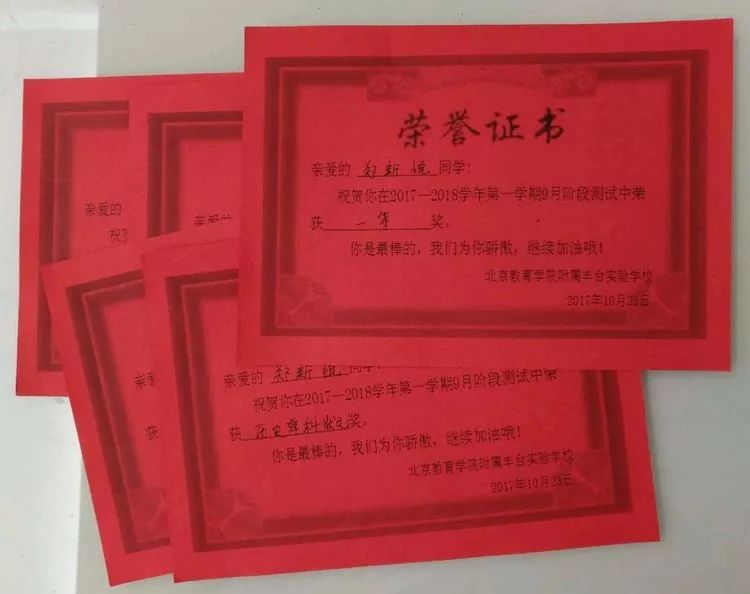 荣誉证书
亲爱的 郑新悦 同学:
祝贺你在2017—2018学年第一学期9月阶段测试中荣
获 一等 奖。
你是最棒的，我们为你骄傲，继续加油哦！
北京教育学院附属丰台实验学校
2017年10月23日
亲爱的
祝贺
亲爱的
祝
亲爱的 郑新悦 同学:
祝贺你在2017—2018学年第一学期9月阶段测试中荣
获 历史单科状元奖。
你是最棒的，我们为你骄傲，继续加油哦！
北京教育学院附属丰台实验学校
2017年10月23日
亲
获